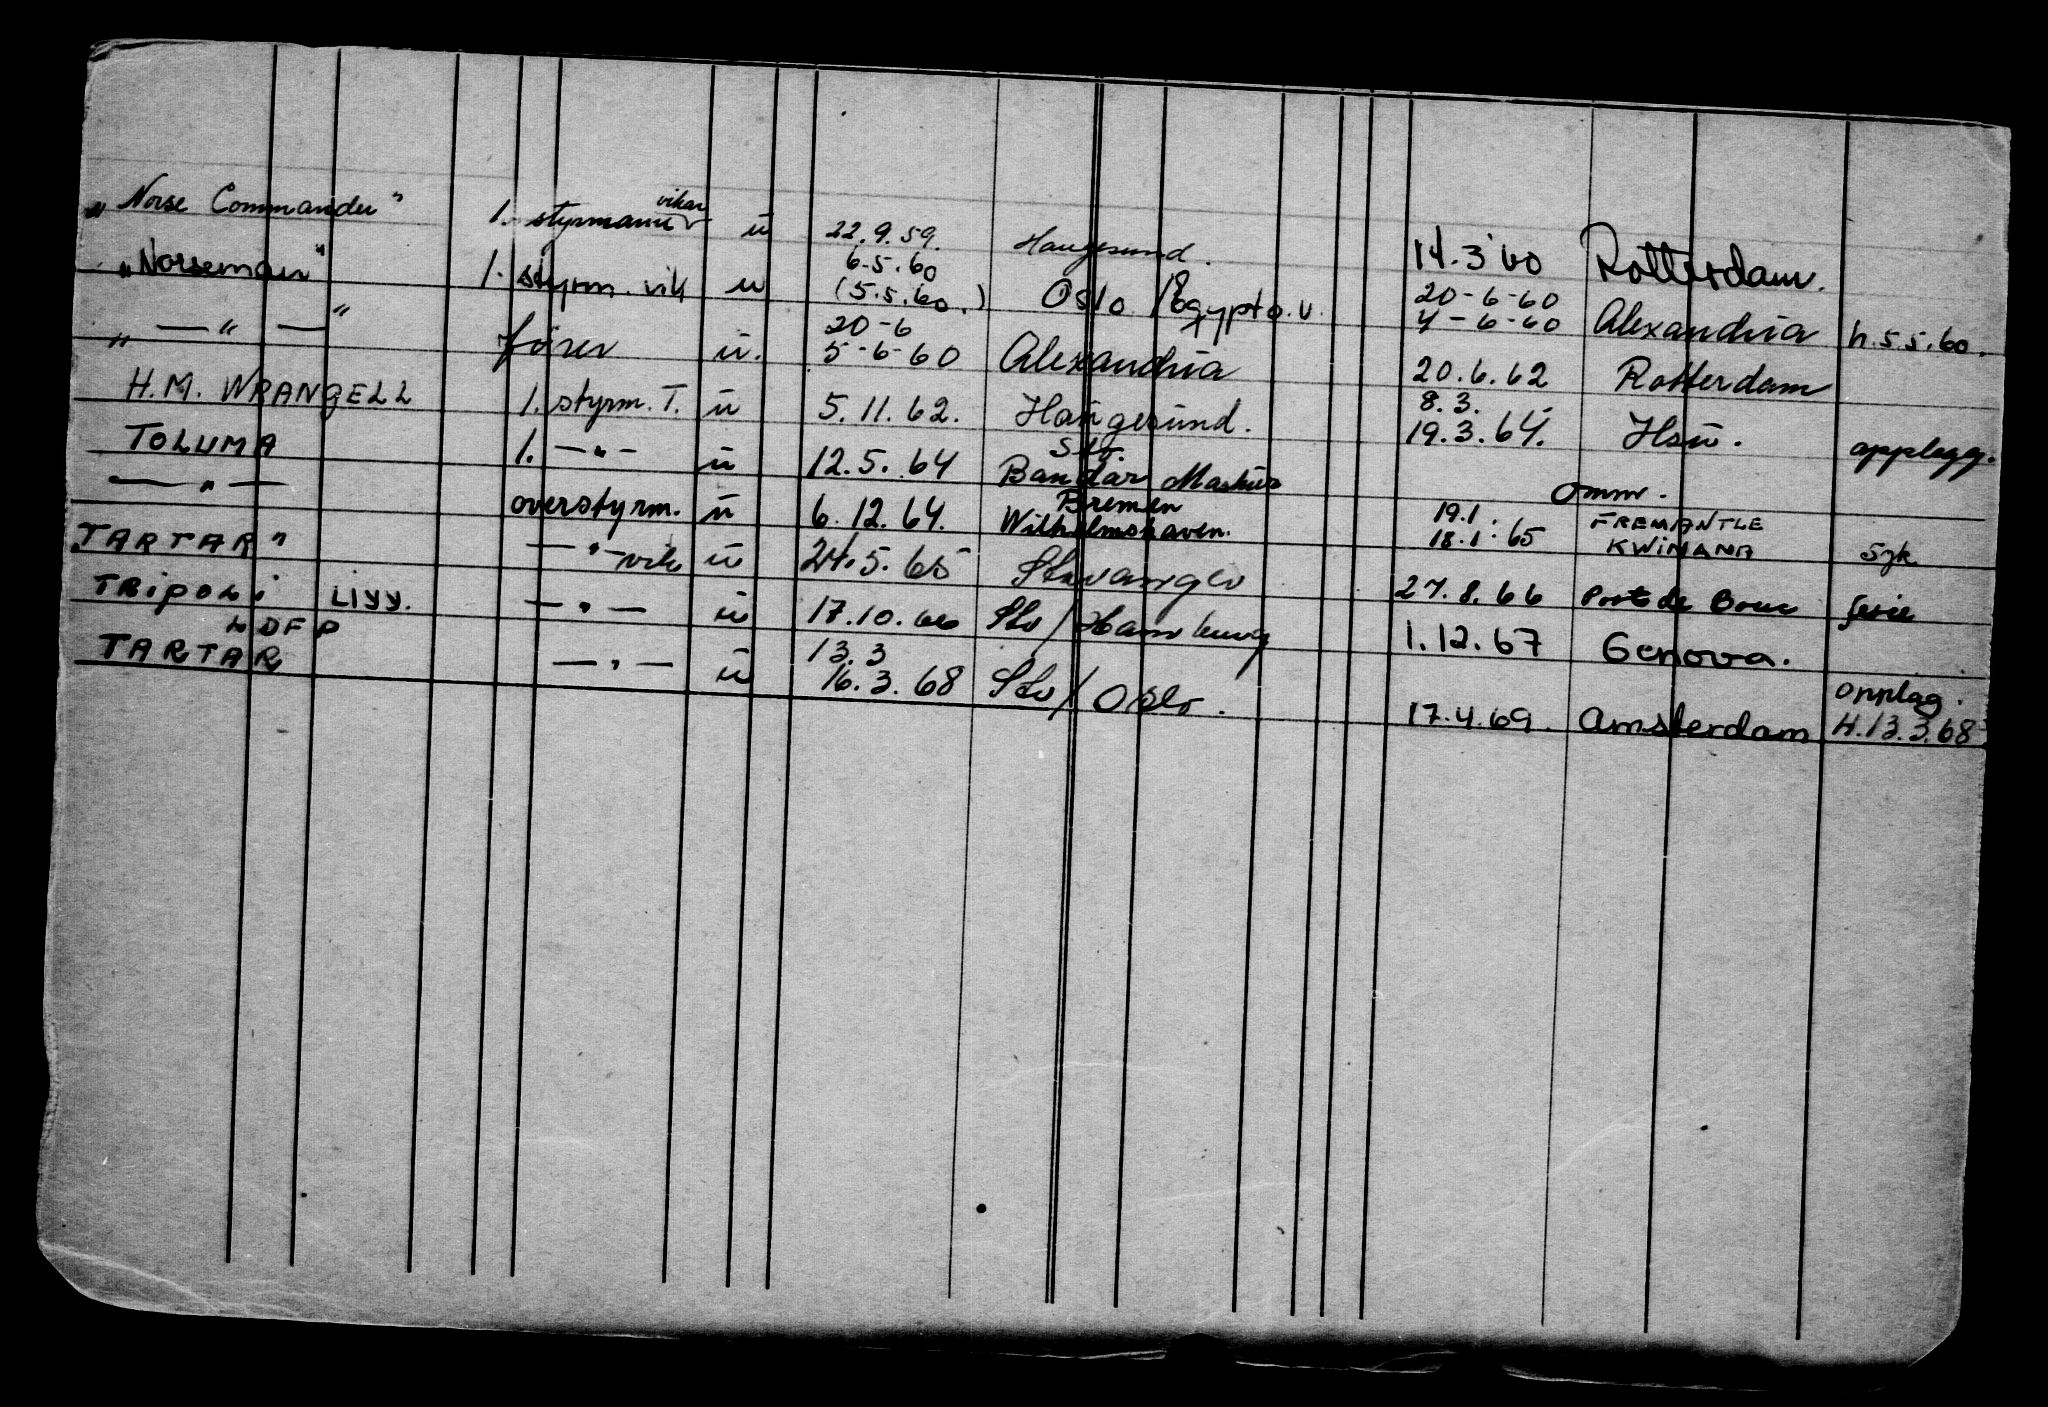 "Norse Commander" 1. styrmann vikar u 22.9.59. Haugesund. 14.3.60 Rotterdam.
"Norseman" 1. styrm. vik u 6.5.60 (5.5.60.) Oslo / Egypt o.u. 20-6-60 4-6-60 Alexandria h.5.5.60.
" — " — " fører u. 20-6 5-6-60 Alexandria 20.6.62 Rotterdam
H.M. WRANGELL 1. styrm. T. u 5.11.62. Haugesund. 8.3. 19.3.64. Hsu. opplegg.
TOLUMA 1. — " — u 12.5.64 Stv. Bandar Mashur omm.
— " — overstyrm. u 6.12.64. Bremen Wilhelmshaven. 19.1. 18.1.65 FREMANTLE KWINANA syk.
TARTAR" — " — vik u 24.5.65 Stavanger 27.8.66 Port de Bouc ferie
TRIPOLI LIYY. — " — u 17.10.66 Stv / Hamburg 1.12.67 Genova. opplag.
LDFP
TARTAR — " — u 13.3 16.3.68 Stv / Oslo. 17.4.69. Amsterdam H.13.3.68